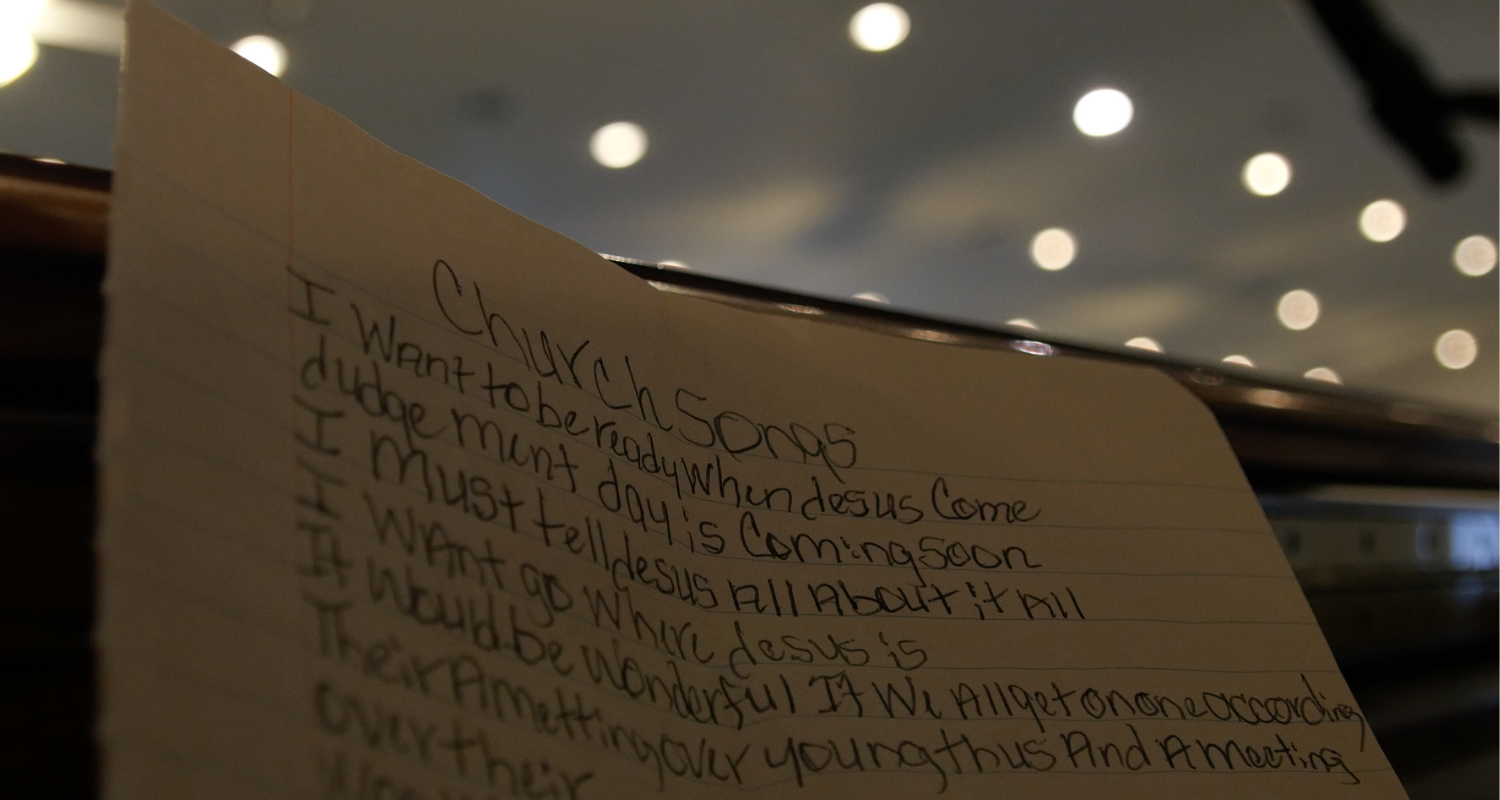 Church Songs
I Want to be ready When desus Come
dudge ment day is Coming Soon
I Must tell desus All About it All
I WAnt go Where desus is
It Would be Wonderful If We All get on one according
Their A metting over young thus And A Meeting
over their